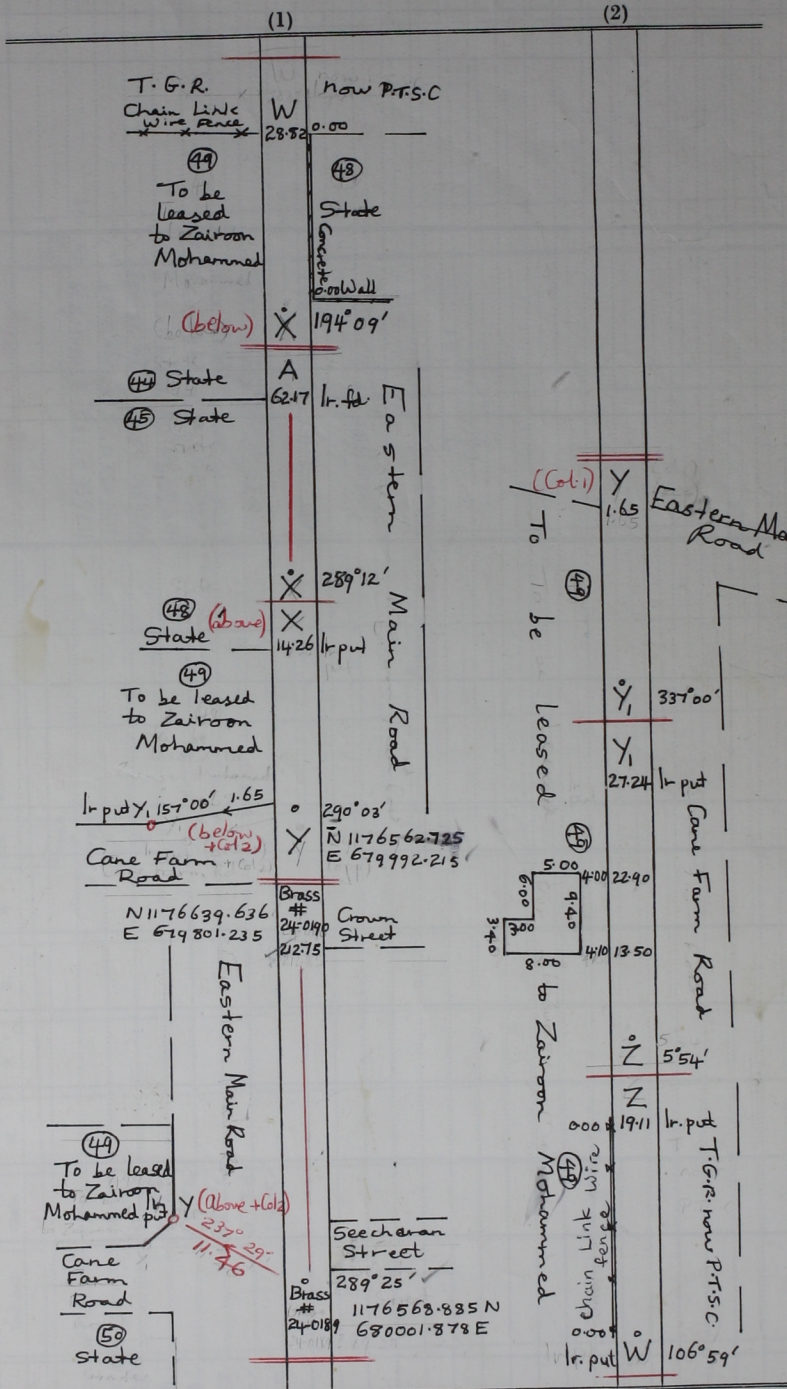 (1)
T.G.R.
now P.T.S.C
Chain Link
Wire Fence
W
28.82
0.00
(49)
To be
leased
to Zairoon
Mohammed
(48)
State
Concrete
0.00 Wall
(below)
X
194°09'
(44) State
A
62.17
Ir. fd.
(45) State
Eastern Main Road
X
289°12'
(48)
State
(above)
X
14.26
Ir put
(49)
To be leased
to Zairoon
Mohammed
Ir put Y1 157°00' 1.65
290°03'
(below
+Col2)
Y
N 1176562.725
E 679992.215
Cane Farm
Road
N 1176639.636
E 679801.235
Brass
#
24-0190
212.75
Crown
Street
Eastern Main Road
(49)
To be leased
to Zairoon
Mohammed
Ir
put
Y (above +Col2)
237° 29'
11.46
Cane
Farm
Road
(50)
State
Seecharan
Street
289°25'
Brass
#
24-0189
1176568.885 N
680001.878 E
(2)
(Col.1)
Y
1.65
Eastern Ma
Road
To be leased to Zairoon Mohammed
(49)
Y1
337°00'
Y1
27.24
Ir put
Cane Farm Road
(49)
5.00
4.00
22.90
6.00
9.40
3.00
3.40
8.00
4.10
13.50
Z
5°54'
N
0.00
19.11
Ir. put
T.G.R. now P.T.S.C.
(49)
Chain Link Wire
fence
0.00
Ir. put
W
106°59'